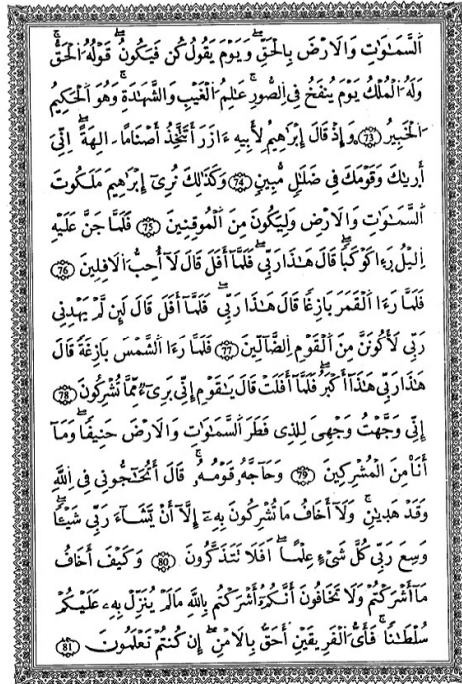 اَ۬لسَّمَٰوَٰتِ وَالَارْضَ بِالْحَقِّۖ وَيَوْمَ يَقُولُ كُن فَيَكُونُۖ قَوْلُهُ اُ۬لْحَقُّۖ
وَلَهُ اُ۬لْمُلْكُ يَوْمَ يُنفَخُ فِي اِ۬لصُّورِۖ عَٰلِمُ اُ۬لْغَيْبِ وَالشَّهَٰدَةِۖ وَهُوَ اَ۬لْحَكِيمُ
اُ۬لْخَبِيرُ 73 وَإِذْ قَالَ إِبْرَٰهِيمُ لِأَبِيهِ ءَازَرَ أَتَتَّخِذُ أَصْنَاماً ـ اٰلِهَةًۖ اِنِّيَ
أَرٰيكَ وَقَوْمَكَ فِي ضَلَٰلٖ مُّبِينٖ 74 وَكَذَٰلِكَ نُرِيٓ إِبْرَٰهِيمَ مَلَكُوتَ
اَ۬لسَّمَٰوَٰتِ وَالَارْضِ وَلِيَكُونَ مِنَ اَ۬لْمُوقِنِينَ 75 فَلَمَّا جَنَّ عَلَيْهِ
اِ۬ليْلُ رَءٰا كَوْكَباًۖ قَالَ هَٰذَا رَبِّيۖ فَلَمَّآ أَفَلَ قَالَ لَآ أُحِبُّ اُ۬لَافِلِينَ 76
فَلَمَّا رَءَا اَ۬لْقَمَرَ بَازِغاً قَالَ هَٰذَا رَبِّيۖ فَلَمَّآ أَفَلَ قَالَ لَئِن لَّمْ يَهْدِنِي
رَبِّي لَأَكُونَنَّ مِنَ اَ۬لْقَوْمِ اِ۬لضَّآلِّينَ 77 فَلَمَّا رَءَا اَ۬لشَّمْسَ بَازِغَةً قَالَ
هَٰذَا رَبِّي هَٰذَآ أَكْبَرُۖ فَلَمَّآ أَفَلَتْ قَالَ يَٰقَوْمِ إِنِّي بَرِيٓءٞ مِّمَّا تُشْرِكُونَ 78
إِنِّي وَجَّهْتُ وَجْهِيَ لِلذِي فَطَرَ اَ۬لسَّمَٰوَٰتِ وَالَارْضَ حَنِيفاًۖ وَمَآ
أَنَا مِنَ اَ۬لْمُشْرِكِينَ 79 وَحَآجَّهُۥ قَوْمُهُۥۖ قَالَ أَتُحَٰٓجُّونِي فِي اِ۬للَّهِ
وَقَدْ هَدٰينِۖ وَلَآ أَخَافُ مَا تُشْرِكُونَ بِهِۦٓ إِلَّآ أَنْ يَّشَآءَ رَبِّي شَيْـٔاًۖ
وَسِعَ رَبِّي كُلَّ شَيْءٍ عِلْماًۖ اَفَلَا تَتَذَكَّرُونَ 80 وَكَيْفَ أَخَافُ
مَآ أَشْرَكْتُمْ وَلَا تَخَافُونَ أَنَّكُمُۥٓ أَشْرَكْتُم بِاللَّهِ مَا لَمْ يُنَزِّلْ بِهِۦ عَلَيْكُمْ
سُلْطَٰناًۖ فَأَيُّ اُ۬لْفَرِيقَيْنِ أَحَقُّ بِالَامْنِۖ إِن كُنتُمْ تَعْلَمُونَ 81